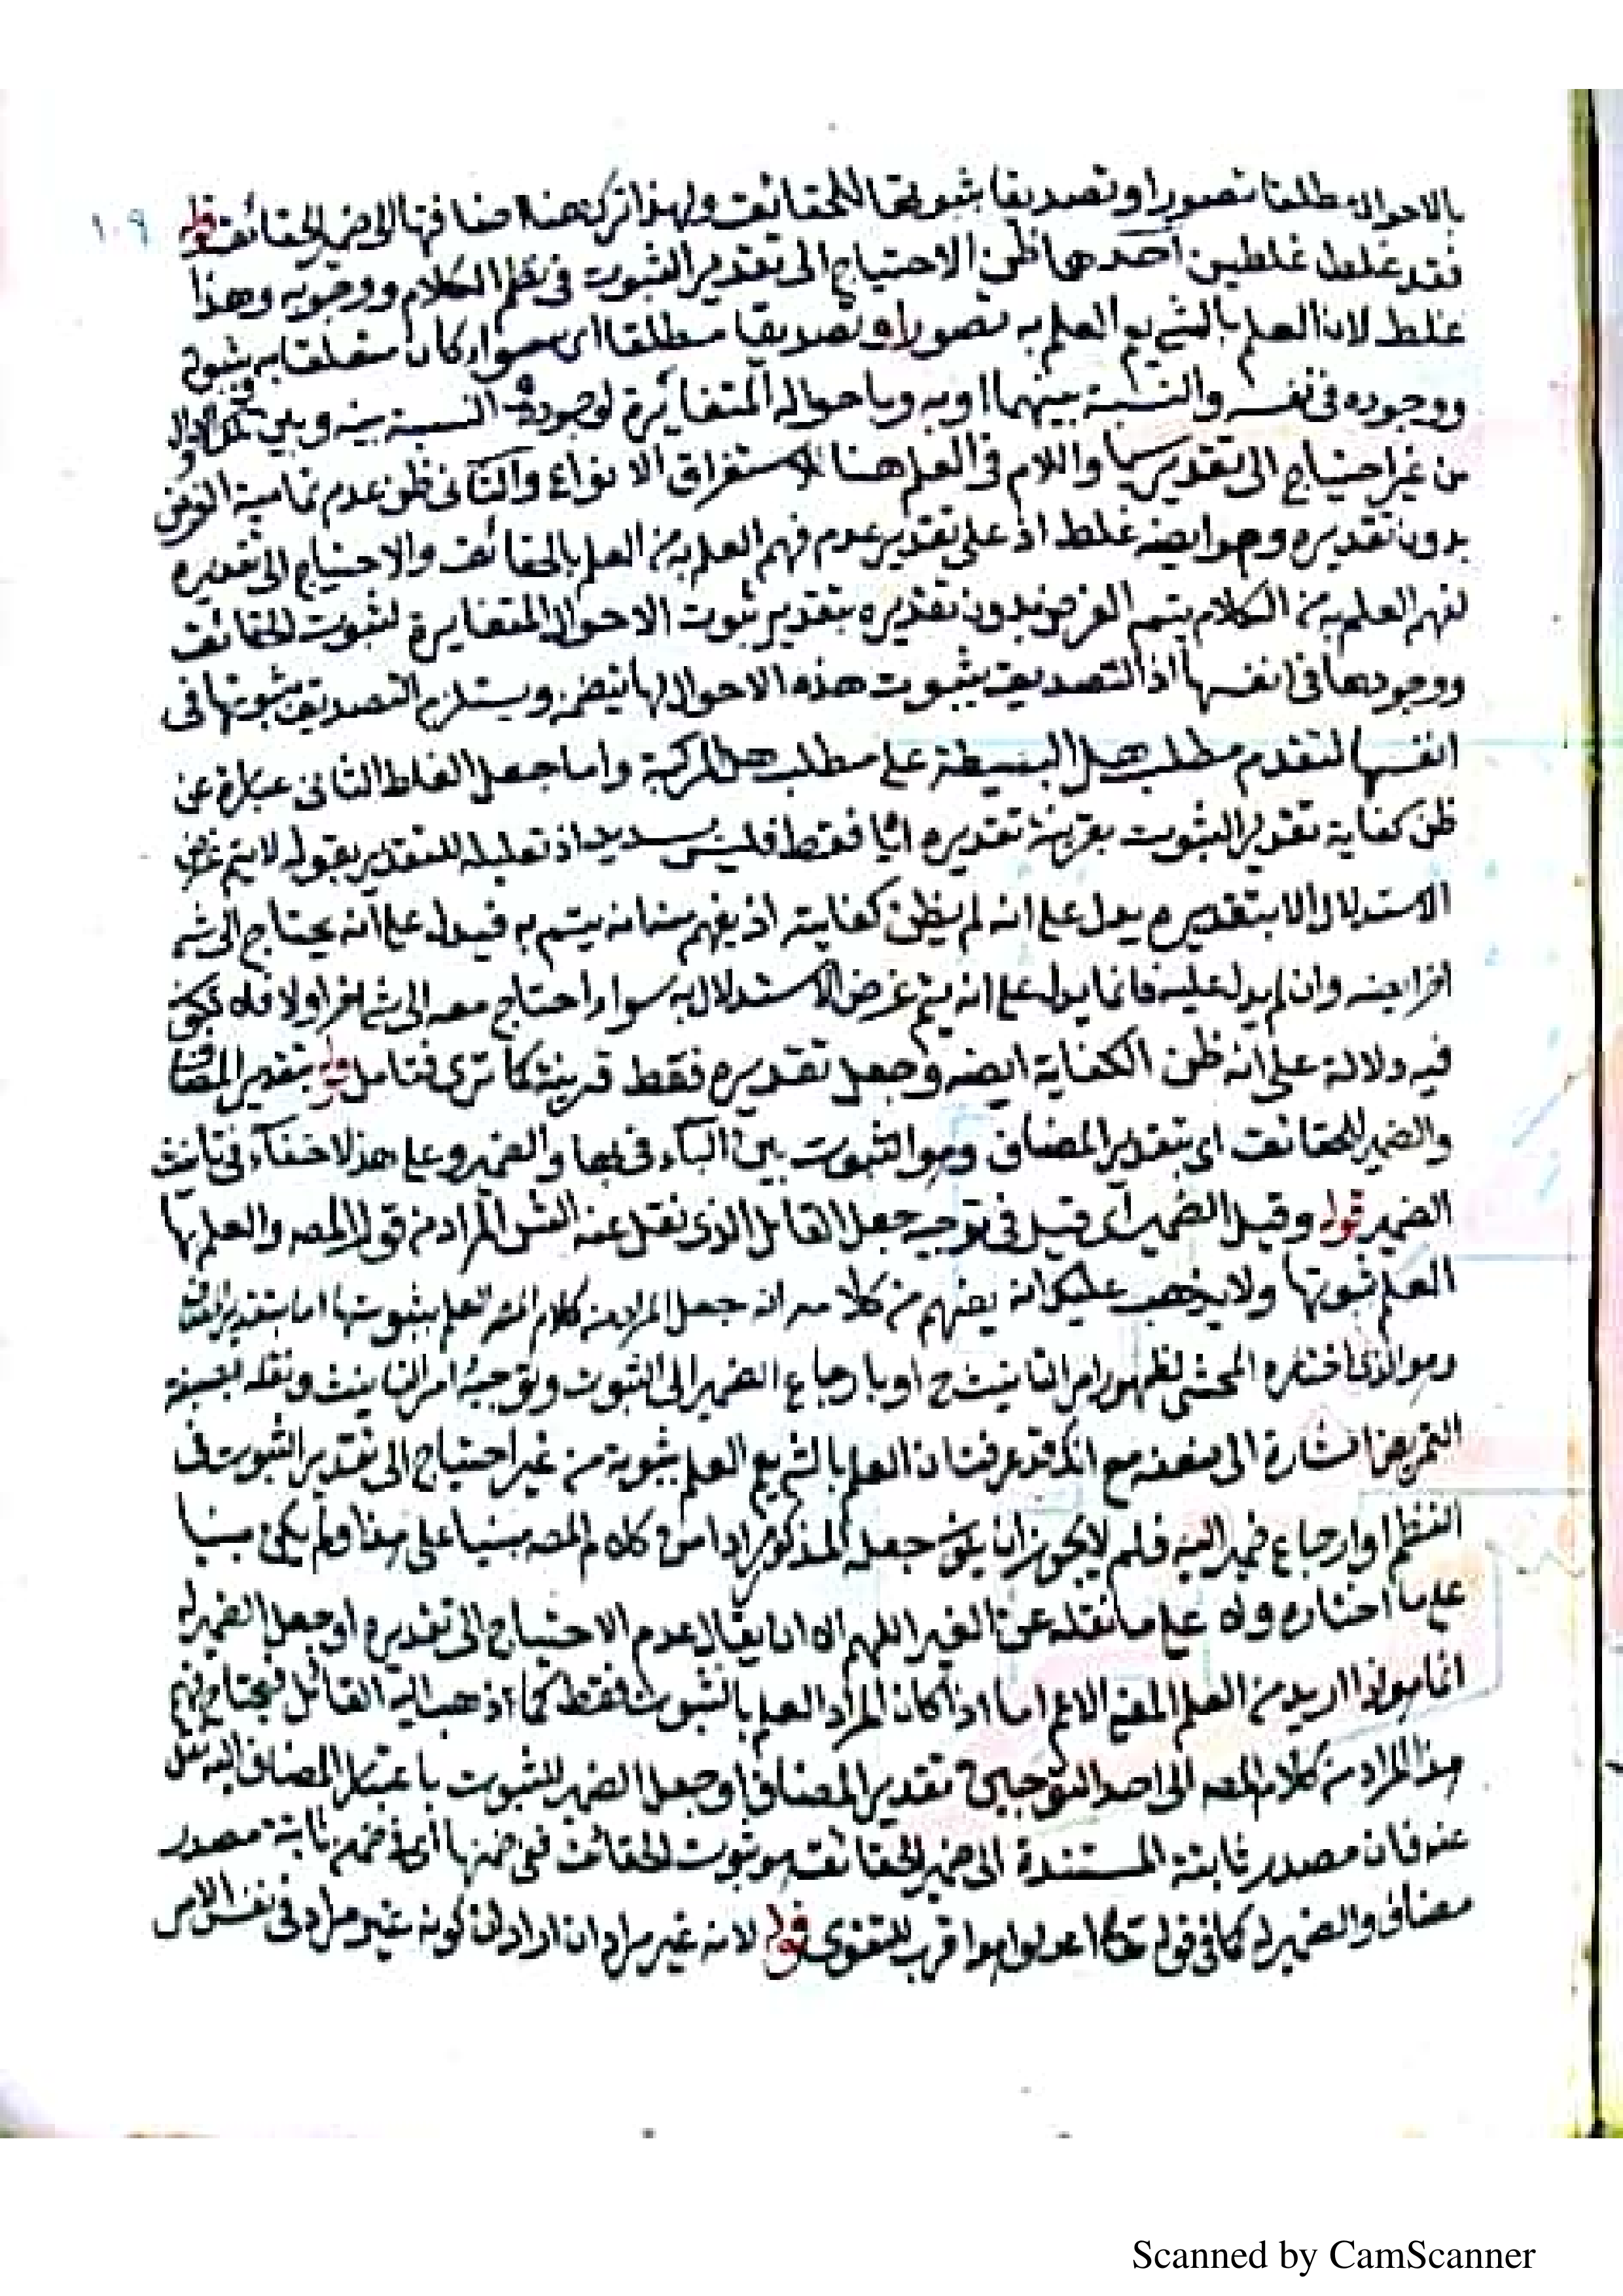 بالاحوال مطلقا تصورا وتصديقا بثبوتها للحقائق ولهذا ترك هنا اضافتها الى ضمير الحقائق قوله
١٠٩
فقد غلط غلطين احدهما ظن الاحتياج الى تقدير الثبوت فى نظم الكلام ووجوبه وهذا
غلط لان العلم بالشئ يعم العلم به تصورا وتصديقا مطلقا اى سواء كان متعلقا به بثبوته
ووجوده فى نفسه والنسبة بينهما او به وباحواله المتغائرة لوجوده النسبة بينه وبين تلك الاحوال
من غير احتياج الى تقدير سيما واللام فى العلم هنا لاستغراق الانواع والثانى ظن عدم تمامية الغرض
بدون تقديره وهو ايضه غلط اذ على تقدير عدم فهم العلم به من العلم بالحقائق والاحتياج الى تقديره
لفهم العلم به من الكلام يتم الغرض بدون تقديره بتقدير ثبوت الاحوال المتغايرة لثبوت الحقائق
ووجودها فى انفسها اذ التصديق بثبوت هذه الاحوال لها يتضمن ويستلزم التصديق بثبوتها فى
انفسها لتقدم مطلب هل البسيطة على مطلب هل المركبة واما جعل الغلط الثانى عبارة عن
ظن كفاية تقدير الثبوت بقرينة تقديره اياه فقط فليس بسديد اذ تعليله للتقدير بقوله لا يتم غرض
الاستدلال الا بتقديره يدل على انه لم يظن كفايته اذ يفهم منه انه يتم به فيدل على انه يحتاج الى شئ
اخر ايضه وان لم يدل عليه فانما يدل على انه يتم غرض الاستدلال به سواء احتاج معه الى شئ اخر اولا فلا يكون
فيه دلالة على انه ظن الكفاية ايضه وجعل تقديره فقط قرينة كما ترى فتامل قوله بتقدير المضاف
والضمير للحقائق اى بتقدير المضاف وهو الثبوت بين الباء فى بها والضمير وعلى هذا لا خفاء فى تانيث
الضمير قوله وقيل الضمير اى قيل فى توجيه جعل القائل الذى نقل عنه الش المراد من قول المصه والعلم بها
العلم بثبوتها ولا يذهب عليك انه يفهم من كلامه انه جعل المراد من كلام المصه العلم بثبوتها اما بتقدير المضاف
وهو الذى اختاره المحشى لظهور امر التانيث ح او بارجاع الضمير الى الثبوت وتوجيه امر التانيث ونقله بصيغة
التمريض اشارة الى ضعفه مع انك قد عرفت ان العلم بالشئ يعم العلم بثبوته من غير احتياج الى تقدير الثبوت فى
النظم او ارجاع ضمير اليه فلم لا يجوز ان يكون جعله المذكور مرادا من كلام المصه مبنيا على هذا ولم يكن مبنيا
على ما اختاره ولا على ما نقله عن الغير اللهم الا ان يقال عدم الاحتياج الى تقديره او جعل الضمير له
انما هو اذا اريد من العلم المعنى الاعم اما اذا كان المراد العلم بالثبوت فقط كما اذهب اليه القائل فيحتاج فهم
هذا المراد من كلام المصه الى احد التوجيهين تقدير المضاف او جعل الضمير للثبوت باعتبار المضاف اليه نقل
عنه فان مصدر ثابتة المستندة الى ضمير الحقائق هو ثبوت الحقائق ففى ضمنها اى فى ضمن ثابتة مصدر
مضاف والضمير له كما فى قوله تعالى اعدلوا هو اقرب للتقوى قوله لانه غير مراد ان اراد ان كونه غير مراد فى نفس الامر
Scanned by CamScanner